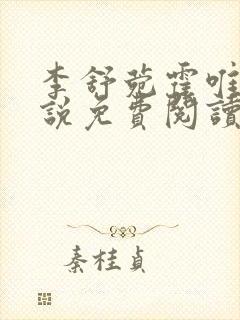 李舒菀霆唯
說免費閱讀
秦桂貞